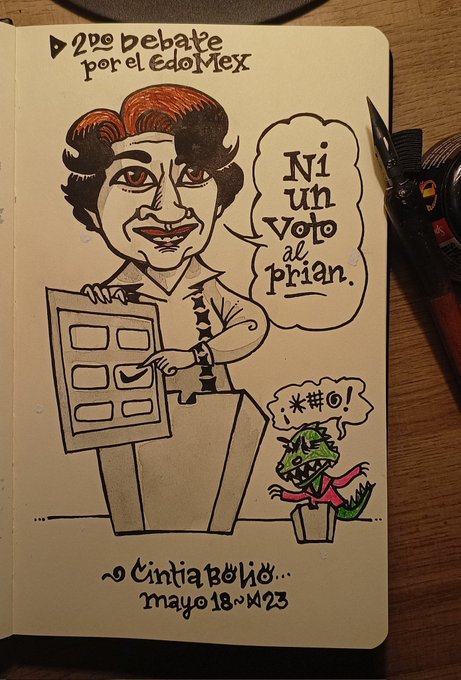 2do Debate
por el EdoMex
Ni
un
voto
al
prian.
¡*#@!
Cintia Bolio...
mayo 18~23